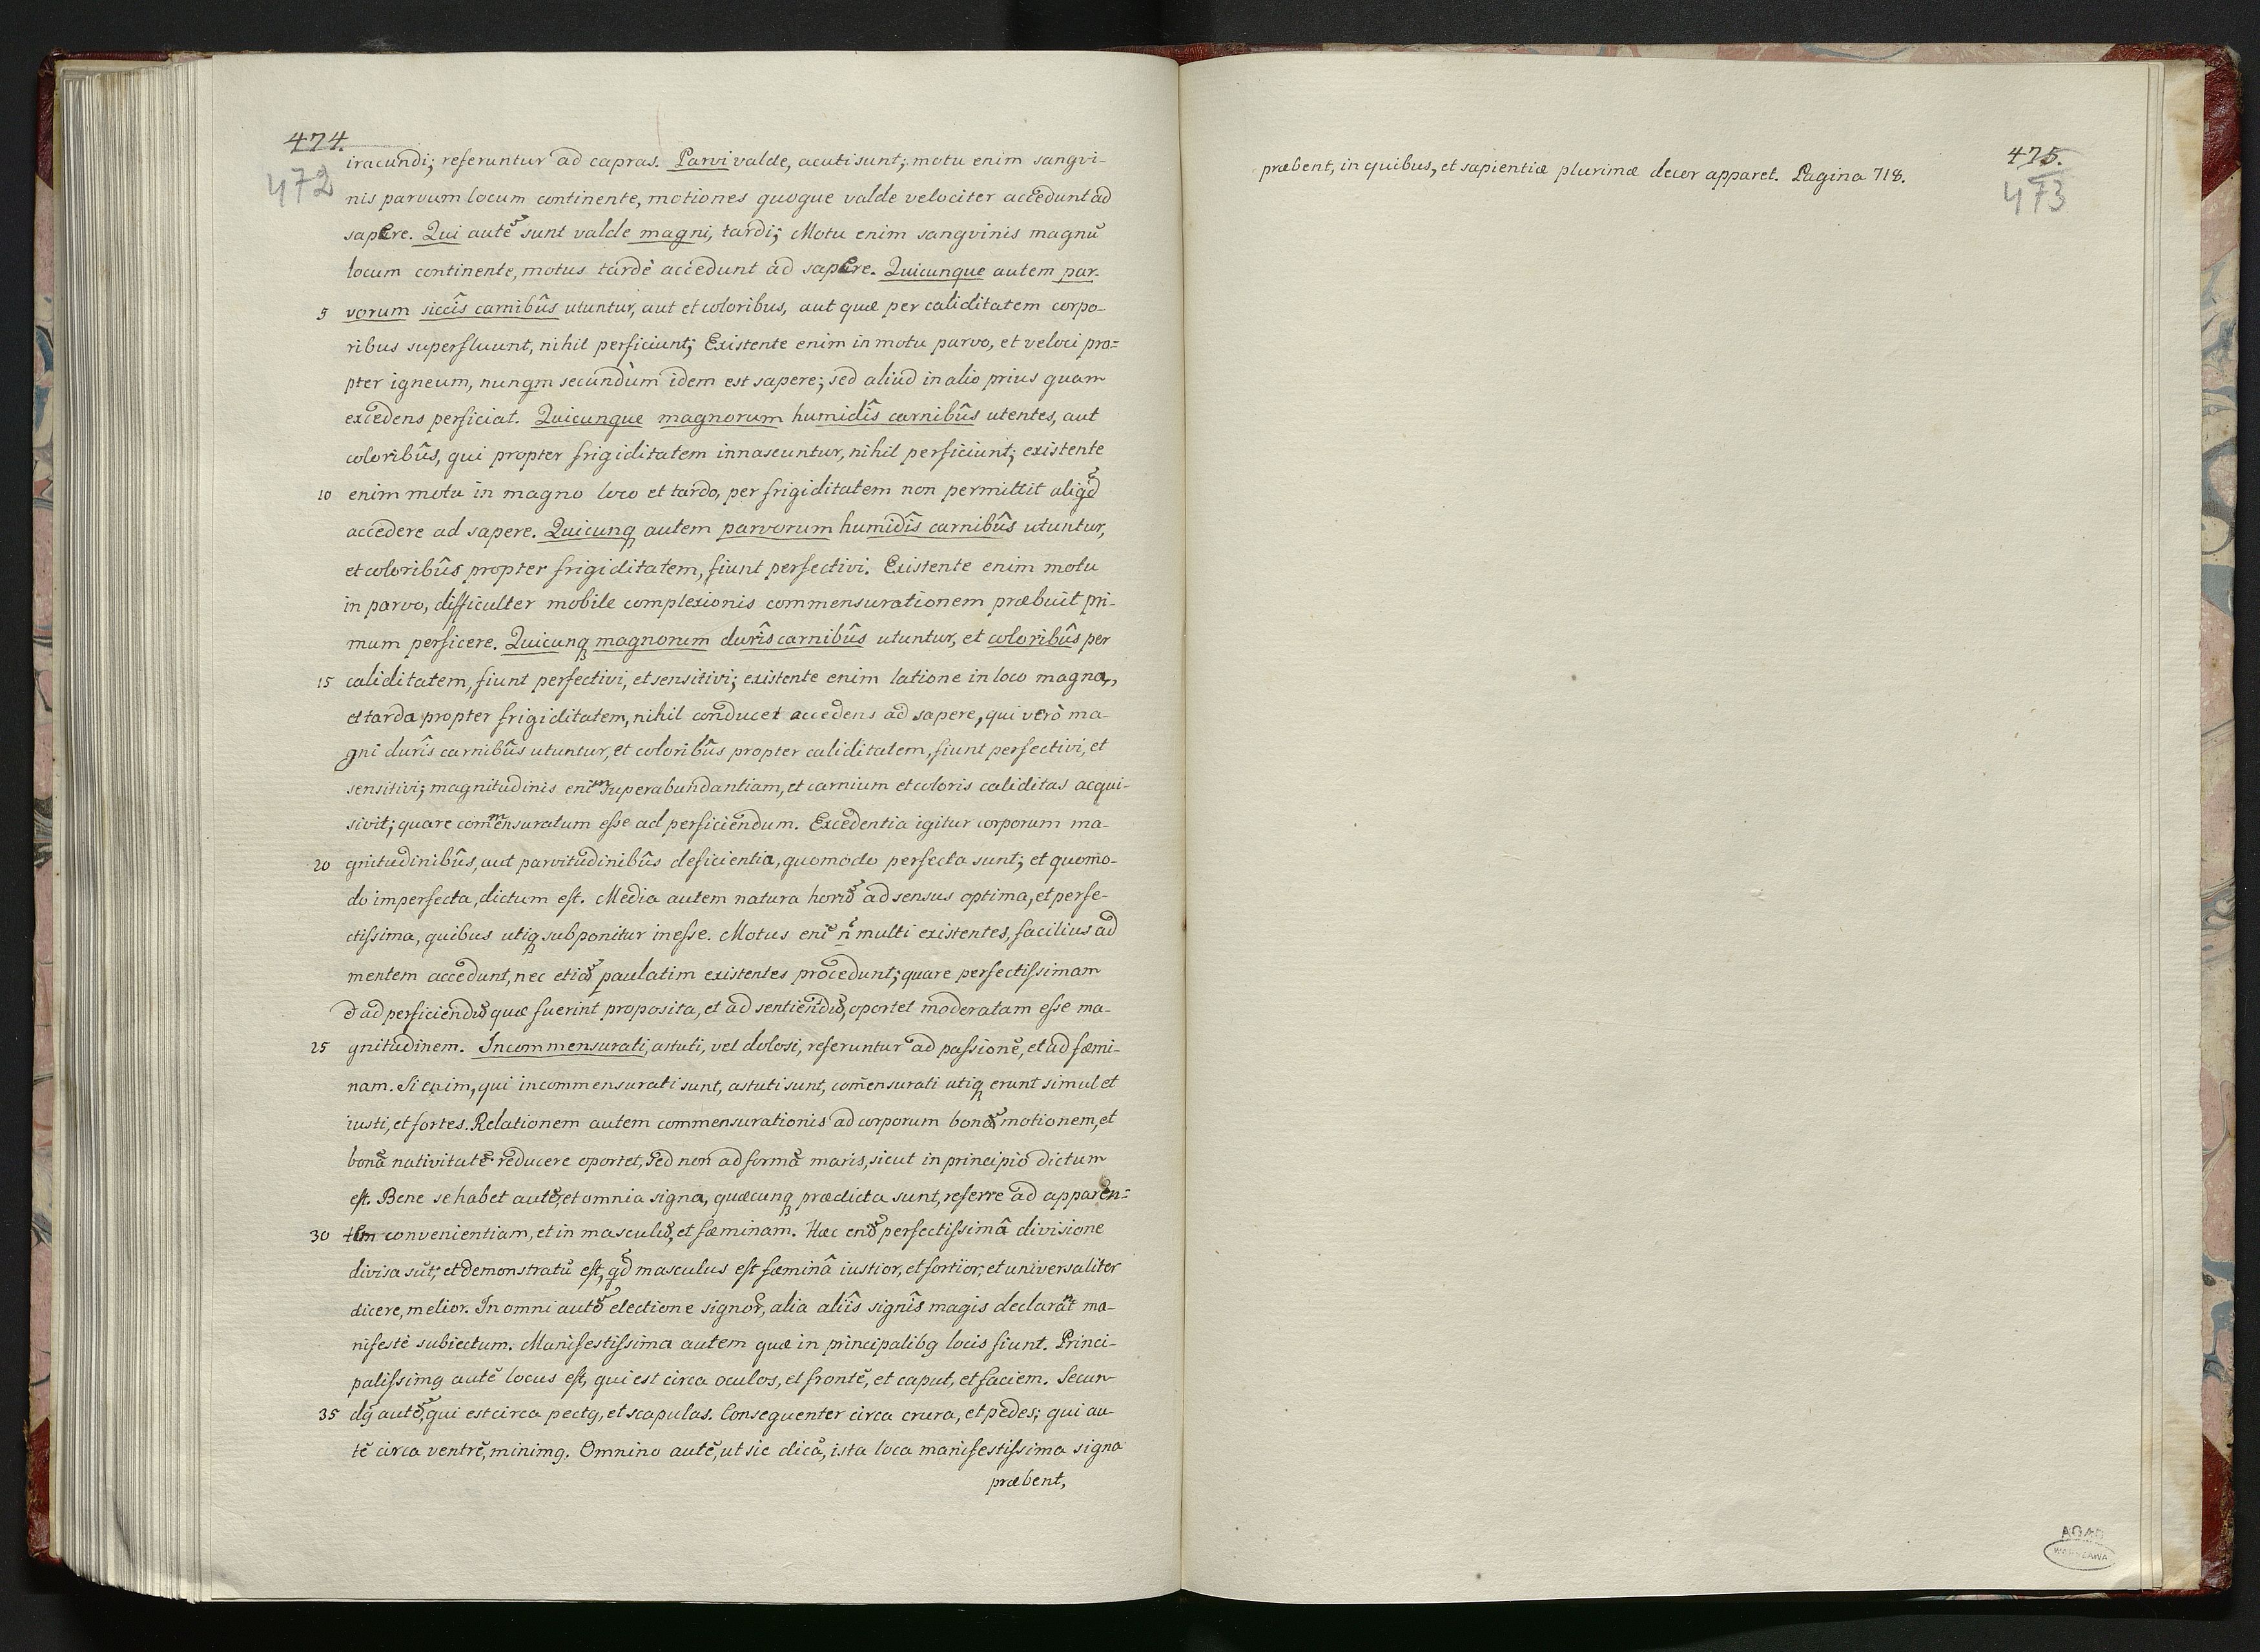 474.
472
iracundi; referuntur ad capras. Parvi valde, acuti sunt; motu enim sangvi-
nis parvum locum continente, motiones quoque valde velociter accedunt ad
sapere. Qui autẽ sunt valde magni, tardi; Motu enim sangvinis magnũ
locum continente, motus tardè accedunt ad sapere. Quicunque autem par-
5 vorum siccîs carnibûs utuntur, aut et coloribus, aut quæ per caliditatem corpo-
ribus superfluunt, nihil perficiunt; Existente enim in motu parvo, et veloci pro=
pter igneum, nunqm secundùm idem est sapere; sed aliud in alio prius quam
excedens perficiat. Quicunque magnorum humidîs carnibûs utentes, aut
coloribûs, qui propter frigiditatem innascuntur, nihil perficiunt; existente
10 enim motu in magno loco et tardo, per frigiditatem non permittit aliqd
accedere ad sapere. Quicunq autem parvorum humidîs carnibûs utuntur,
et coloribûs propter frigiditatem, fiunt perfectivi. Existente enim motu
in parvo, difficulter mobile complexionis commensurationem præbuit pri-
mum perficere. Quicunq magnorum durîs carnibûs utuntur, et coloribûs per
15 caliditatem, fiunt perfectivi, et sensitivi; existente enim latione in loco magna,
et tarda propter frigiditatem, nihil conducet accedens ad sapere, qui verò ma-
gni durîs carnibûs utuntur, et coloribûs propter caliditatem, fiunt perfectivi, et
sensitivi; magnitudinis enim superabundantiam, et carnium et coloris caliditas acqui-
sivit; quare commensuratum esse ad perficiendum. Excedentia igitur corporum ma-
20 gnitudinibûs, aut parvitudinibûs deficientia, quomodo perfecta sunt; et quomo-
do imperfecta, dictum est. Media autem natura horũ ad sensus optima, et perfe-
ctissima, quibus utiq subponitur inesse. Motus enĩ ñ multi existentes, facilius ad
mentem accedunt, nec etiã paulatim existentes procedunt; quare perfectissimam
ad perficiendũ quæ fuerint proposita, et ad sentiendũ, oportet moderatam esse ma-
25 gnitudinem. Incommensurati, astuti, vel dolosi, referuntur ad passionẽ, et ad fœmi-
nam. Si enim, qui incommensurati sunt, astuti sunt, com̃ensurati utiq erunt simul et
iusti, et fortes. Relationem autem commensurationis ad corporum bonã motionem, et
bonã nativitatẽ reducere oportet, sed non ad formã maris, sicut in principio dictum
est. Bene se habet autẽ, et omnia signa, quæcunq prædicta sunt, referre ad apparen=
30 tem convenientiam, et in masculũ, et fœminam. Hæc enĩ perfectissimâ divisione
divisa sũt; et demonstratũ est, qd masculus est fœminâ iustior, et fortior; et universaliter
dicere, melior. In omni autẽ electione signor, alia aliîs signîs magis declarant ma-
nifestè subiectum. Manifestissima autem quæ in principalibq locis fiunt. Princi-
palissimq autẽ locus est, qui est circa oculos, et frontẽ, et caput, et faciem. Secun-
35 dq autẽ, qui est circa pectq, et scapulas. Consequenter circa crura, et pedes; qui au-
tẽ circa ventrẽ, minimq. Omnino autẽ, ut sic dicã, ista loca manifestissima signa
præbent,
475.
473
præbent, in quibus, et sapientiæ plurimæ decor apparet. Pagina 718.
AGAD
WARSZAWA